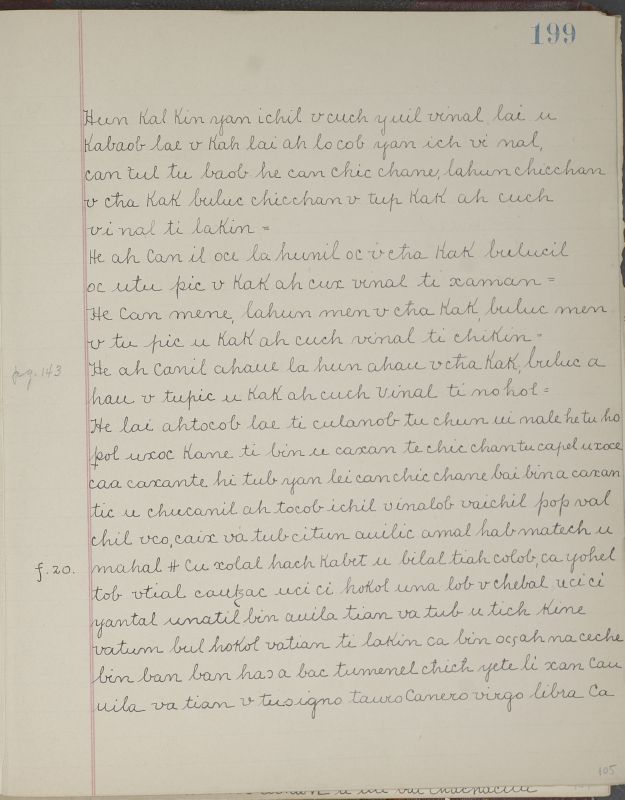 199
Hun Kal Kin yan ichil v cuch yuil vinal, lai u
Kabaob lae v Kah lai ah lo cob yan ich vi nal,
can tul tu baob he can chic chane, lahun chicchan
v cħa KaK buluc chicchan v tup KaK ah cuch
vi nal ti laKin =
He ah Can il oce la hunil oc v cħa KaK bulucil
oc utu pic v KaK ah cux vinal ti xaman =
He Can mene, lahun men v cħa KaK, buluc men
v tu pic u KaK ah cuch vinal ti chiKin =
pg. 143
He ah Canil ahaue la hun ahau v cħa KaK, buluc a
hau v tupic u KaK ah cuch Vinal ti no hol =
He lai ahtocob lae ti culanob tu chun ui nale he tu ho
pol uxoc Kane ti bin u caxan te chic chan tu capel uxoce
caa caxante hi tub yan lei can chic chane bai bin a caxan
tic u chucanil ah tocob ichil vinalob vaichil pop val
chil vco, caix va tub citun auilic amal hab matech u
f. 20.
mahal # Cu xolal hach Kabet u bilal tiah colob, ca yohel
tob vtial cauꜩac uci ci hoKol una lob v chebal uci ci
yantal unatil bin auila tian va tub u tich Kine
vatum bul hoKol vatian ti laKin ca bin ocsah na ceche
bin ban ban hasa bac tumenel cħich yete li xan Cau
uila va tian v tu signo tauro Canero virgo libra Ca
105